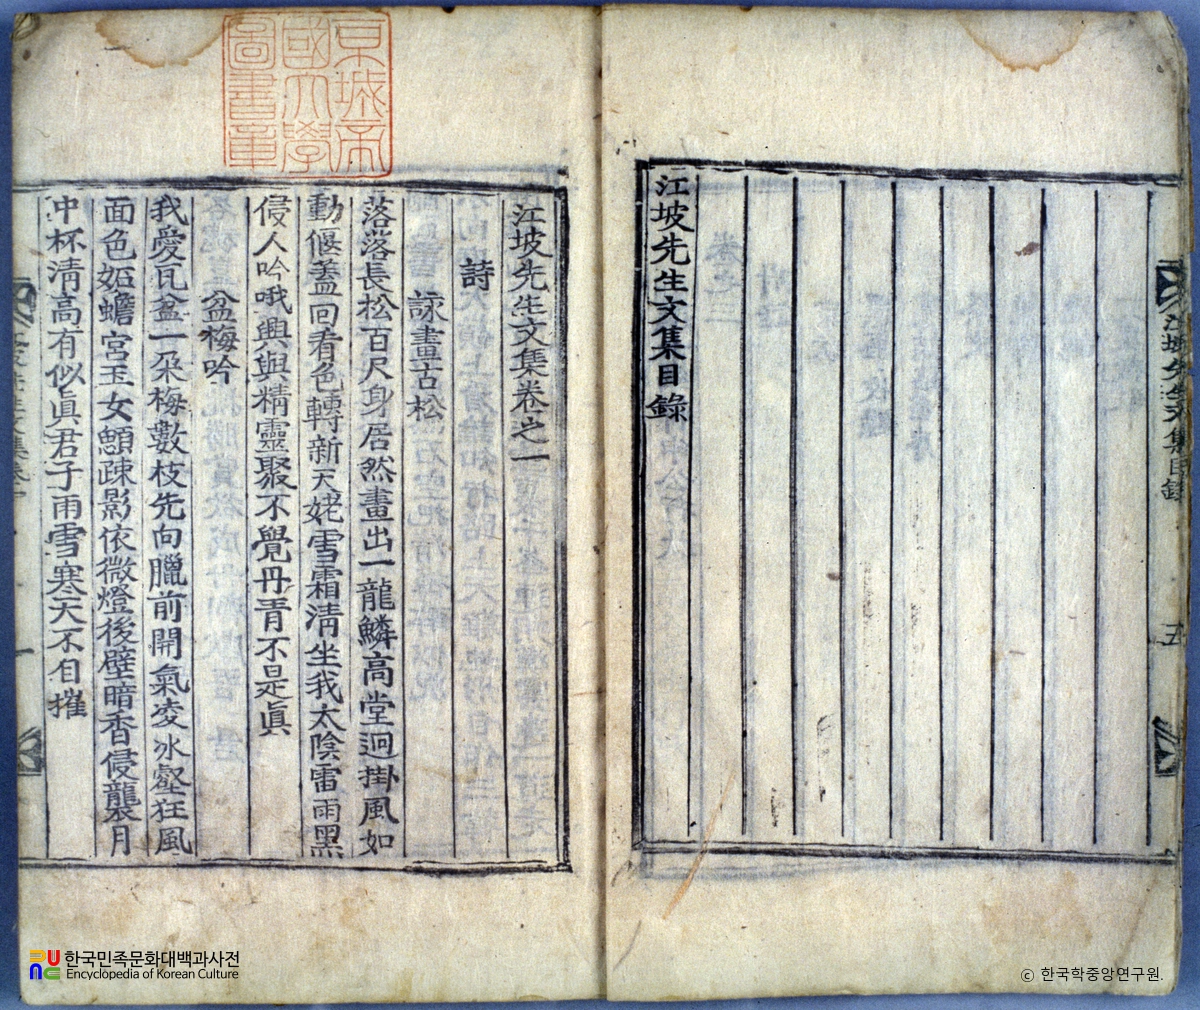 江坡先生文集目錄
江坡先生文集目錄
五
京城帝
國大學
圖書章
江坡先生文集卷之一
詩
詠畫古松
落落長松百尺身居然畫出一龍鱗高堂迥掛風如
動偃盖回看色轉新天姥雪霜淸坐我太陰雷雨黑
侵人吟哦興與精靈聚不覺丹靑不是眞
盆梅吟
我愛瓦盆一朶梅數枝先向臘前開氣凌氷壑狂風
面色妬蟾宮玉女顋疎影依微燈後壁暗香侵襲月
中杯淸高有似眞君子雨雪寒天不自摧
한국민족문화대백과사전
Encyclopedia of Korean Culture
© 한국학중앙연구원.